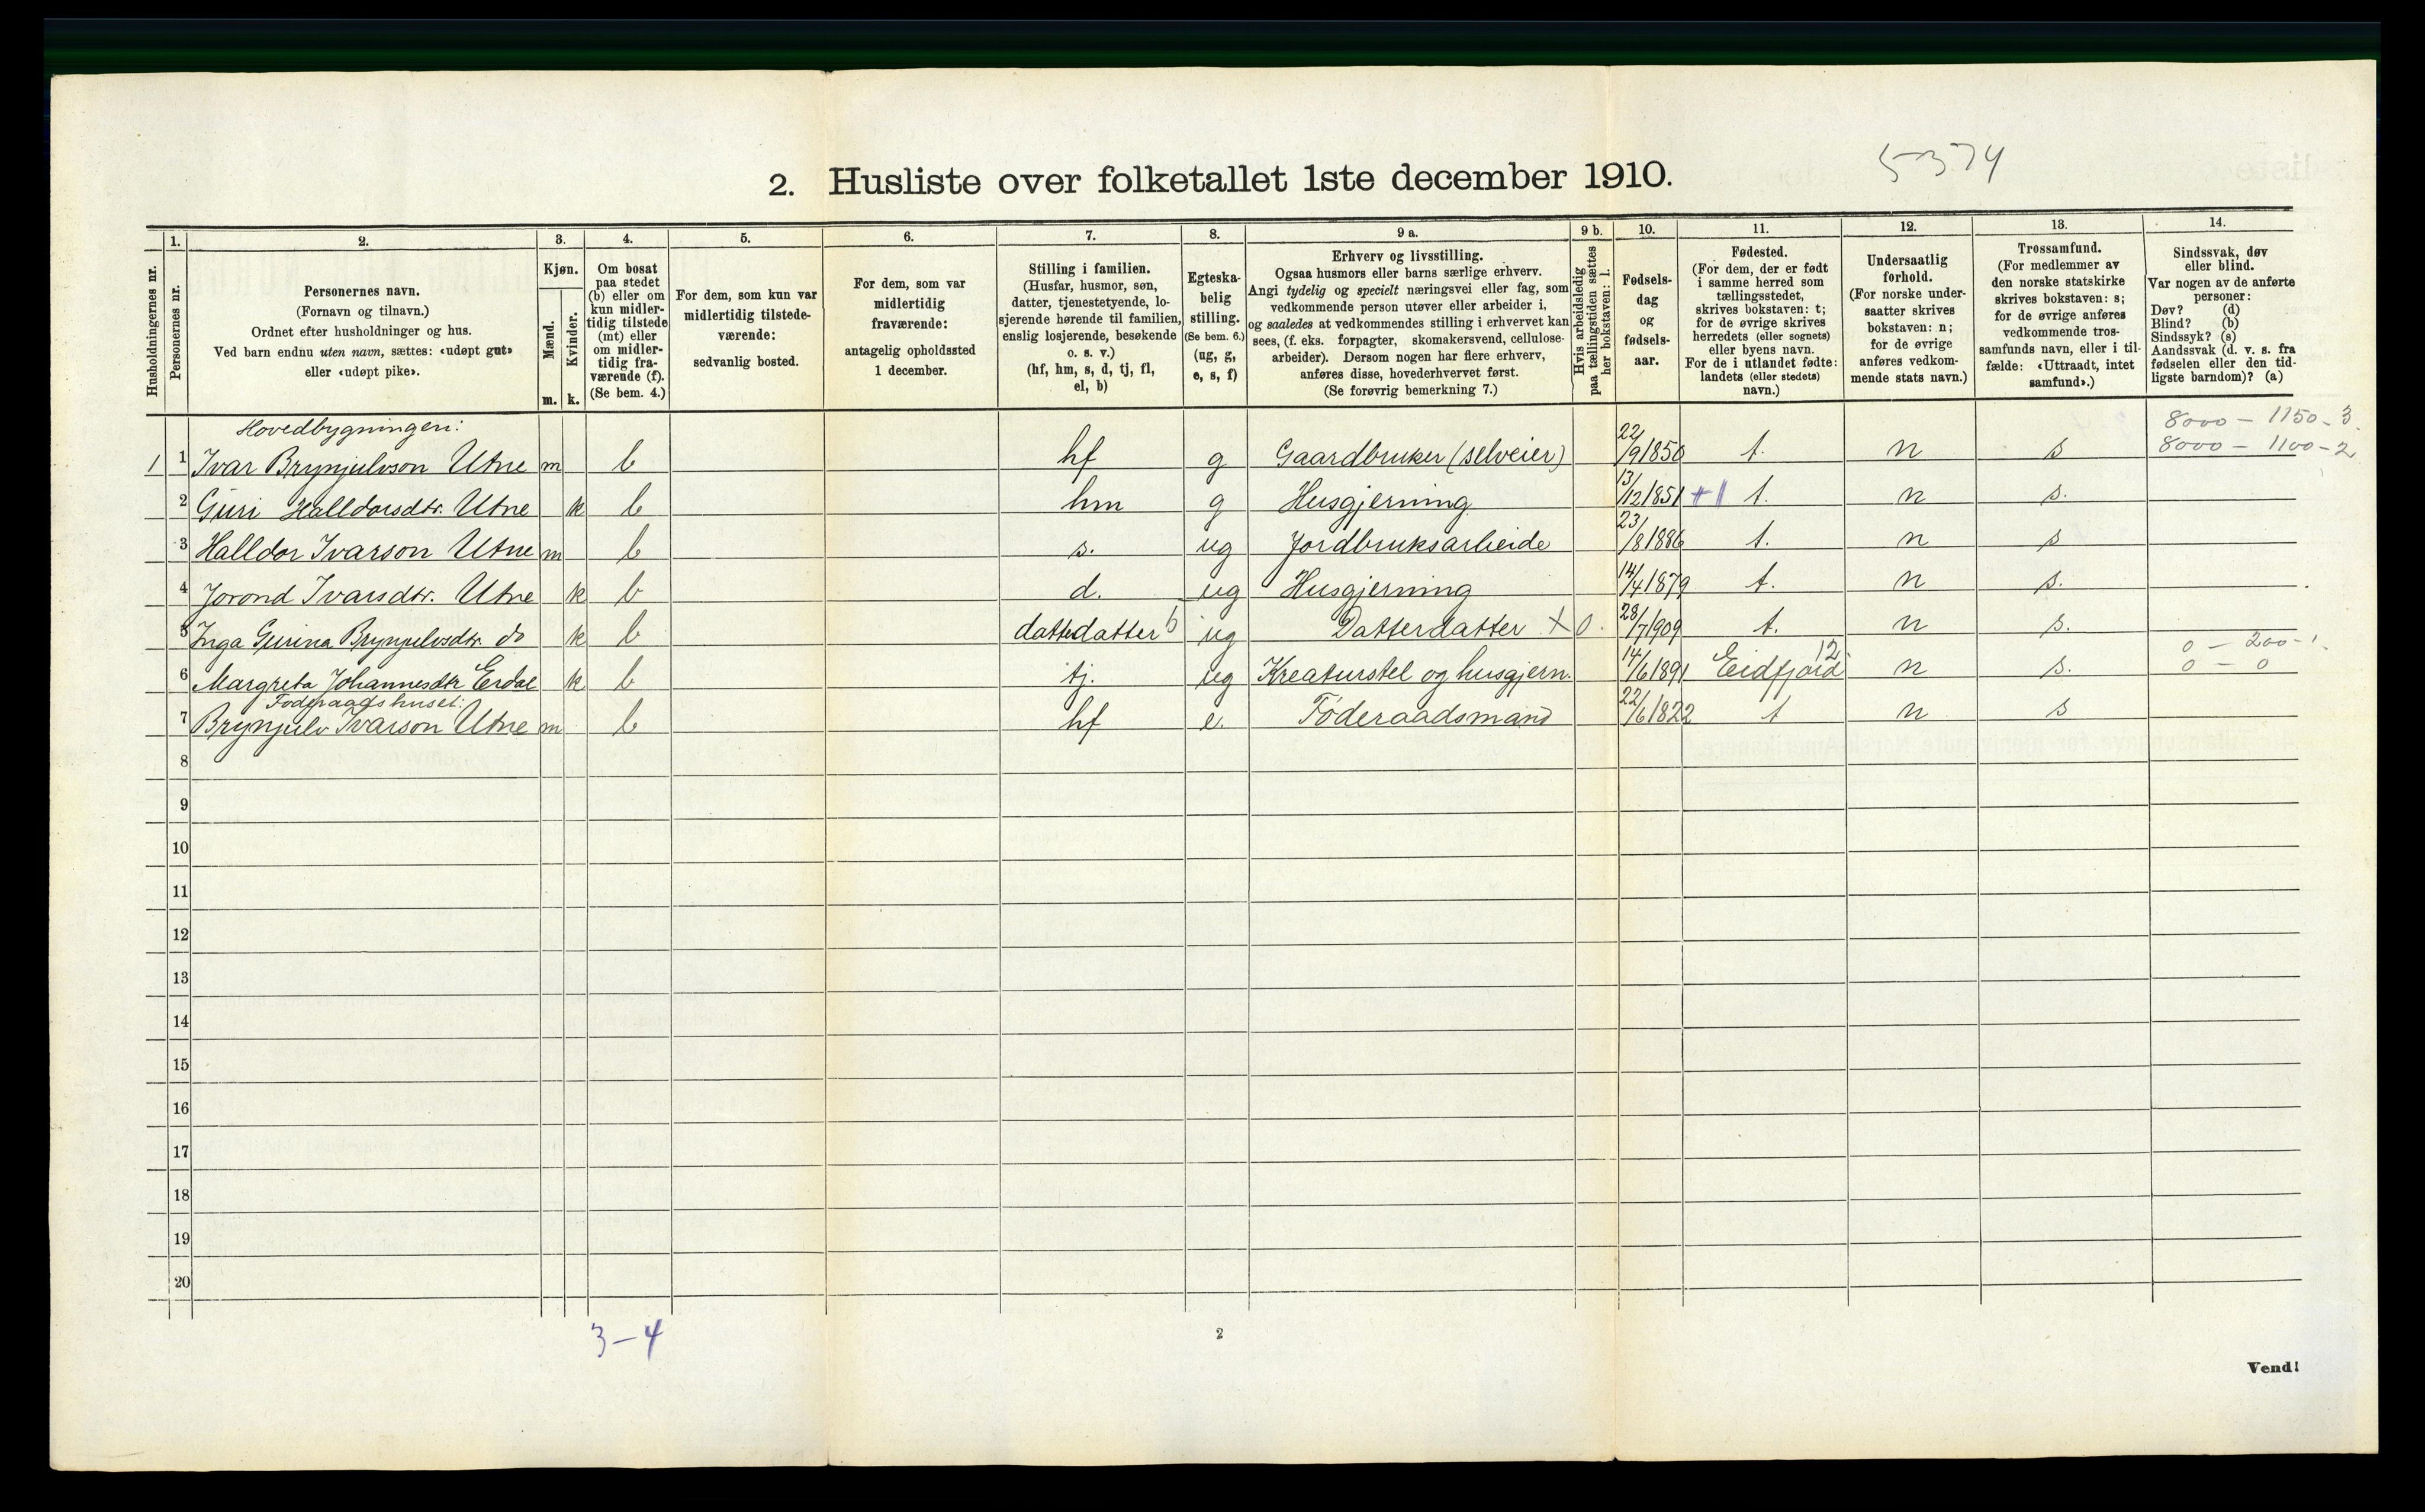 2. Husliste over folketallet 1ste december 1910.
5374
Husholdningernes nr.
1.
Personernes nr.
2.
Personernes navn.
(Fornavn og tilnavn.)
Ordnet efter husholdninger og hus.
Ved barn endnu uten navn, sættes: «udøpt gut»
eller «udøpt pike».
3.
Kjøn.
Mænd.
Kvinder.
m. k.
4.
Om bosat
paa stedet
(b) eller om
kun midler-
tidig tilstede
(mt) eller
om midler-
tidig fra-
værende (f).
(Se bem. 4.)
5.
For dem, som kun var
midlertidig tilstede-
værende:
sedvanlig bosted.
6.
For dem, som var
midlertidig
fraværende:
antagelig opholdssted
1 december.
7.
Stilling i familien.
(Husfar, husmor, søn,
datter, tjenestetyende, lo-
sjerende hørende til familien,
enslig losjerende, besøkende
o. s. v.)
(hf, hm, s, d, tj, fl,
el, b)
8.
Egteska-
belig
stilling.
(Se bem. 6.)
(ug, g,
e, s, f)
9 a.
Erhverv og livsstilling.
Ogsaa husmors eller barns særlige erhverv.
Angi tydelig og specielt næringsvei eller fag, som
vedkommende person utøver eller arbeider i,
og saaledes at vedkommendes stilling i erhvervet kan
sees, (f. eks. forpagter, skomakersvend, cellulose-
arbeider). Dersom nogen har flere erhverv,
anføres disse, hovederhvervet først.
(Se forøvrig bemerkning 7.)
9 b.
Hvis arbeidsledig
paa tællingstiden sættes
her bokstaven: l.
10.
Fødsels-
dag
og
fødsels-
aar.
11.
Fødested.
(For dem, der er født
i samme herred som
tællingsstedet,
skrives bokstaven: t;
for de øvrige skrives
herredets (eller sognets)
eller byens navn.
For de i utlandet fødte:
landets (eller stedets)
navn.)
12.
Undersaatlig
forhold.
(For norske under-
saatter skrives
bokstaven: n;
for de øvrige
anføres vedkom-
mende stats navn.)
13.
Trossamfund.
(For medlemmer av
den norske statskirke
skrives bokstaven: s;
for de øvrige anføres
vedkommende tros-
samfunds navn, eller i til-
fælde: «Uttraadt, intet
samfund».)
14.
Sindssvak, døv
eller blind.
Var nogen av de anførte
personer:
Døv? (d)
Blind? (b)
Sindssyk? (s)
Aandssvak (d. v. s. fra
fødselen eller den tid-
ligste barndom)? (a)
Hovedbygningen:
8000 - 1150 - 3
1 1 Ivar Brynjulvson Utne m b hf g Gaardbruker (selveier) 22/9 1850 t. n s 8000 - 1100 - 2
2 Guri Halldorsdtr. Utne k b hm g Husgjerning 13/12 1851 t. n s.
3 Halldor Ivarson Utne m b s. ug Jordbruksarbeide 23/8 1886 t. n s
4 Jorond Ivarsdtr. Utne k b d. ug Husgjerning 14/4 1879 t. n s.
5 Inga Gurina Brynjulvsdtr. do k b datterdatter b ug Datterdatter X 0. 28/7 1909 t. n s.
12 0 - 200 - 1
6 Margreta Johannesdtr Erdal k b tj. ug Kreaturstel og husgjern. 14/6 1891 Eidfjord n s. 0 - 0
Føderaadshuset:
7 Brynjulv Ivarson Utne m b hf e. Føderaadsmand 22/6 1822 t n s
8
9
10
11
12
13
14
15
16
17
18
19
20
3-4
2
Vend!